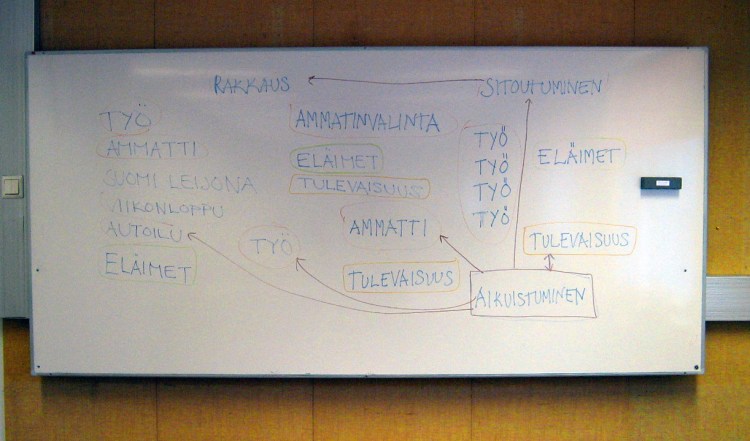 RAKKAUS
SITOUTUMINEN
TYÖ
AMMATTI
SUOMI LEIJONA
VIIKONLOPPU
AUTOILU
ELÄIMET
TYÖ
AMMATINVALINTA
ELÄIMET
TULEVAISUUS
AMMATTI
TULEVAISUUS
TYÖ
TYÖ
TYÖ
TYÖ
ELÄIMET
TULEVAISUUS
AIKUISTUMINEN